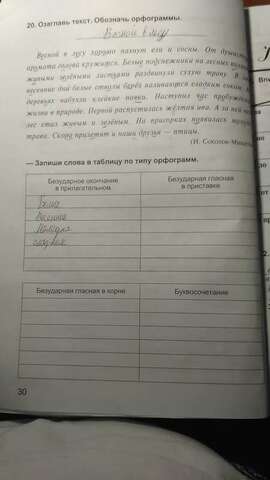 20. Озаглавь текст. Обозначь орфограммы.
Весной в лесу
Весной в лесу хорошо пахнут ели и сосны. От
аромата голова кружится. Белые подснежники на лесных
живыми зелёными листьями раздвинули сухую траву. В
весенние дни белые стволы берёз наливаются сладким соком. На
деревьях набухли клейкие почки. Наступил час пробуждения
жизни в природе. Первой распустилась жёлтая ива. А за ней
лес стал живым и зелёным. На пригорках появилась
трава. Скоро прилетят и наши друзья — птицы.
(И. Соколов-Микитов)
— Запиши слова в таблицу по типу орфограмм.
Безударное окончание
в прилагательном
Безударная гласная
в приставке
Белые
Безударная гласная в корне
Буквосочетание
30